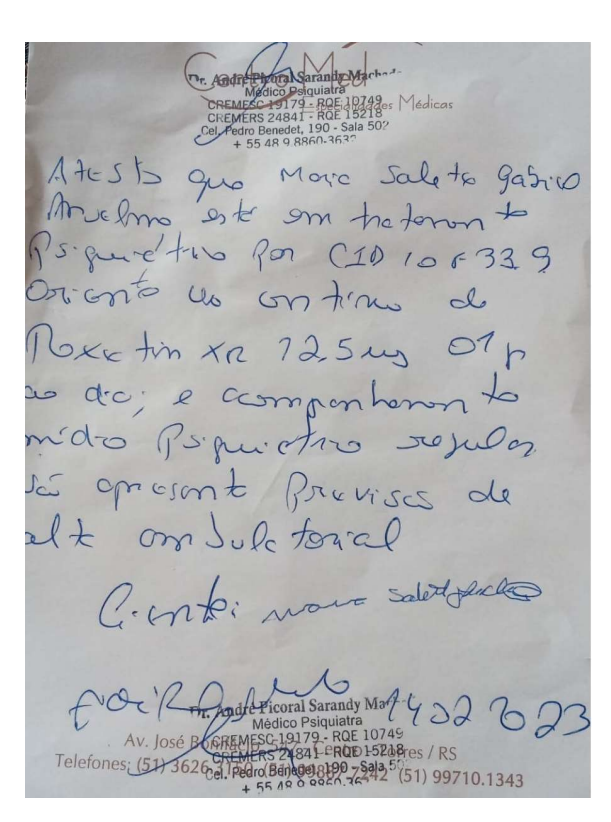 CentroMed
Dr. André Picoral Sarandy Machado
Médico Psiquiatra
CREMESC 19179 - RQE 10749
Especialidades Médicas
CREMERS 24841 - RQE 15218
Cel. Pedro Benedet, 190 - Sala 502
+ 55 48 9.8860-363
Atesto que Maria Salete
está em tratamento
Psiquiátrico por CID 10 F 33 9
Oriento uso contínuo de
Roxetin XR 12,5 mg 01 p
ao dia; e acompanhamento
médico Psiquiátrico regular
não apresenta Previsão de
alta ambulatorial
Ciente:
Dr. André Picoral Sarandy
14 02 2023
Médico Psiquiatra
Av. José
CREMESC 19179 - RQE 10749
CREMERS 24841 - RQE 15218
/ RS
Telefones: (51) 3626
(51) 99710.1343
Cel. Pedro Benedet, 190 - Sala 50